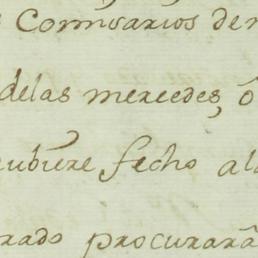 Comisarios de
delas mercedes, ó
ubiere fecho al
rado procurará